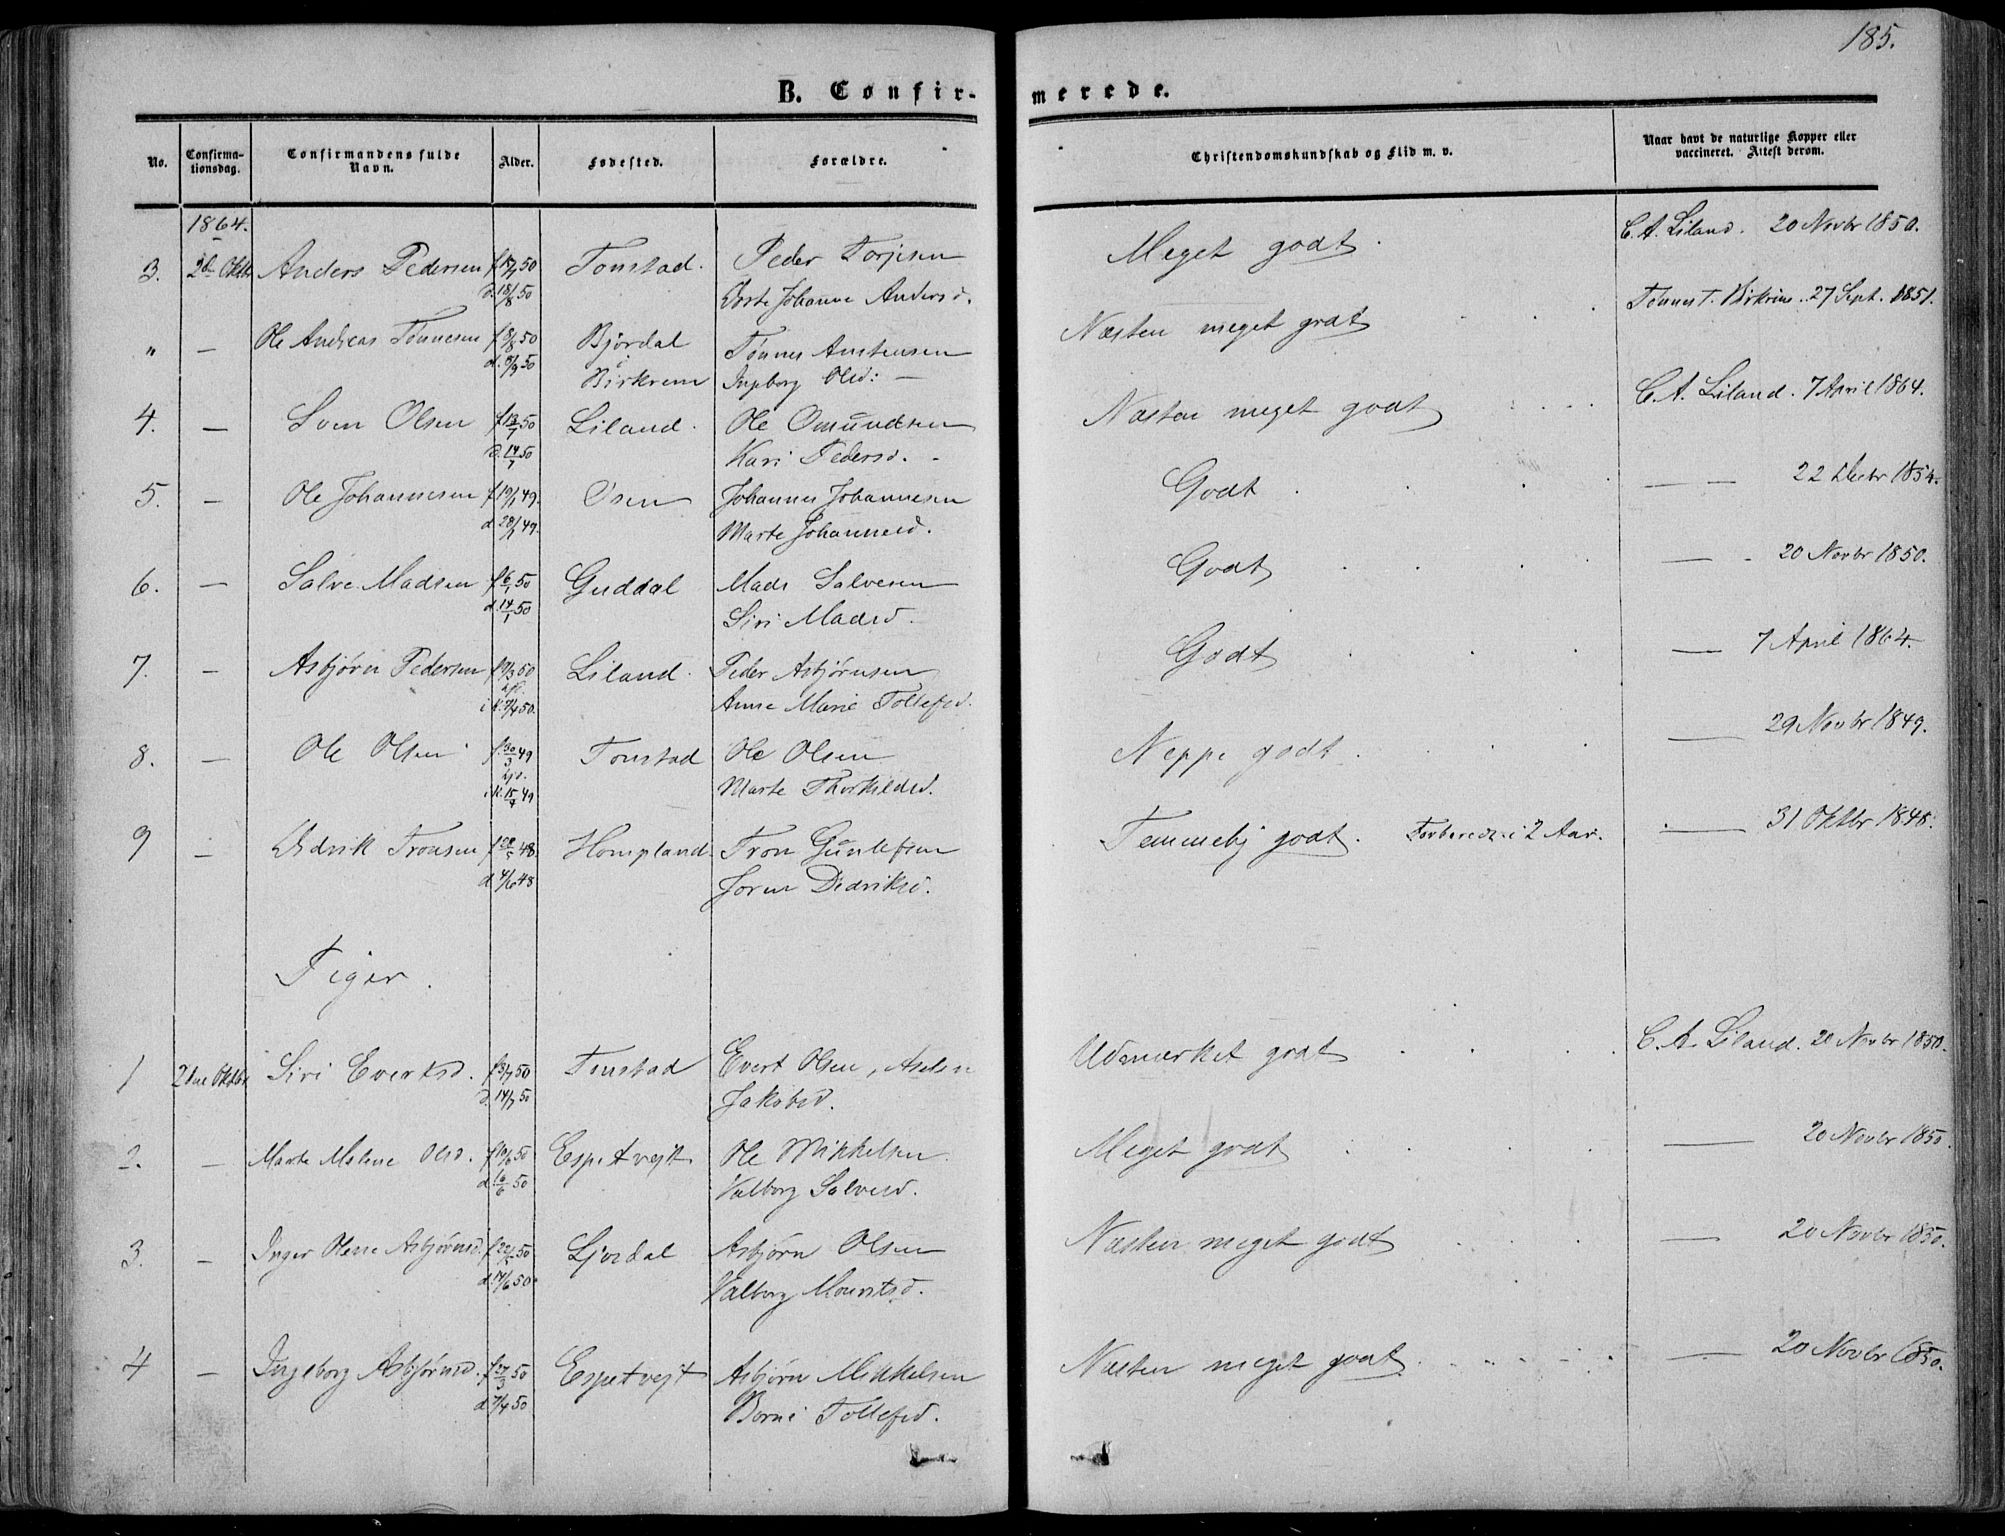 185.
B. Confirmerede.
No. Confirmationsdag. Confirmandens fulde Navn. Alder. Fødested. Forældre. Christendomskundskab og Flid m. v. Naar havt de naturlige Kopper eller vaccineret. Attest derom.
1864.
3. 2d Oktbr Anders Pedersen Tonstad. Peder Torjesen Meget godt. C. A. Liland. 20 Novbr 1850.
d. 18/8 50 Johanne Andersd.
" — Ole Andreas Tønnesen f 8/8 50 Bjørdal Tønnes Austensen Næsten meget godt Tønnes T. Birkrem. 27 Sept. 1851.
d. 8/9 50 i Birkrem Ingborg Olsd: —
4. — Sven Olsen f 13/7 50 Liland. Ole Omundsen Næsten meget godt C. A. Liland. 7 April 1864.
d. 14/7 50 Kari Pedersd.
5. — Ole Johannesen f 19/1 49. Osen Johannes Johannesen Godt — — 22 Decbr 1854.
d 28/1 49. Marte Johannesd.
6. — Salve Madsen f 6/1 50 Guddal Mads Salvesen Godt — 20 Novbr 1850.
d. 14/1 50 Siri Madsd.
7. — Asbjørn Pedersen Liland. Peder Asbjørnsen Godt — 7 April 1864.
i K. 7/4 50. Anne Marie Tollefsd.
8. — Ole Olsen f. 30/3 49 Tonstad Ole Olsen Neppe godt. — 29 Novbr 1849.
i K. 15/4 49 Marte Thorkildsd.
9 — Didrik Tronsen f 28/5 48. Hompland. Tron Guntefsen Temmelig godt. Forberedt i 2 Aar. — 31 Oktbr 1848.
d 4/6 48 Joren Didriksd.
Piger.
1 2den Oktbr Siri Evertsd. f 3/7 50 Tonstad Evert Olsen, Udmærket godt C. A. Liland. 20 Novbr 1850.
d. 14/7 50 Jakobsd.
2. — Marte Malene Olsd. f 10/6 50 Espetvejt Ole Mikkelsen Meget godt — 20 Novbr 1850.
d 16/6 50 Valborg Salvesd.
3. — Inger Olene Asbjørnsd. f 22/5 50 Ljosdal Asbjørn Olsen Næsten meget godt — 20 Novbr 1850.
Valborg Mouritsd.
4 — Ingeborg Asbjørnsd. f 27/3 50 Espetvejt Asbjørn Mikkelsen Næsten meget godt. — 20 Novbr 1850.
d 7/4 50 Borni Tollefsd.